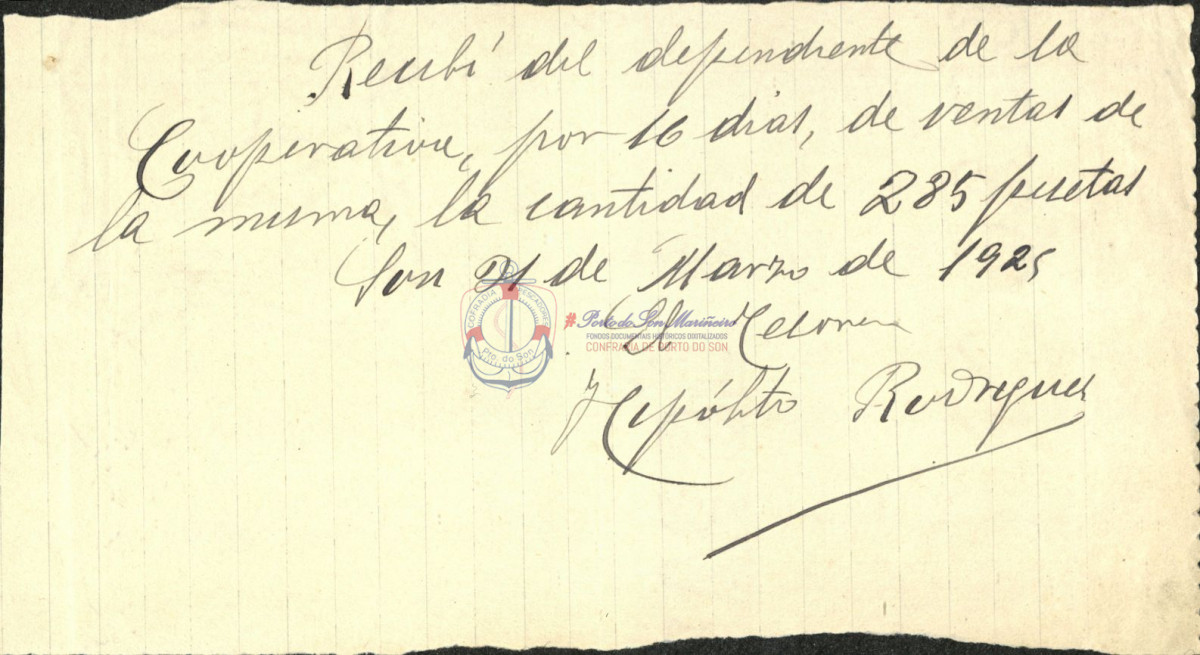 Recibí del dependiente de la
Cooperativa, por 16 dias, de ventas de
la misma, la cantidad de 285 pesetas
Son de Marzo de 1925
El Tesorero
Hipólito Rodriguez
COFRADIA PESCADORES
Pto. do Son
#Porto do Son Mariñeiro
FONDOS DOCUMENTAIS HISTÓRICOS DIXITALIZADOS
CONFRARÍA DE PORTO DO SON